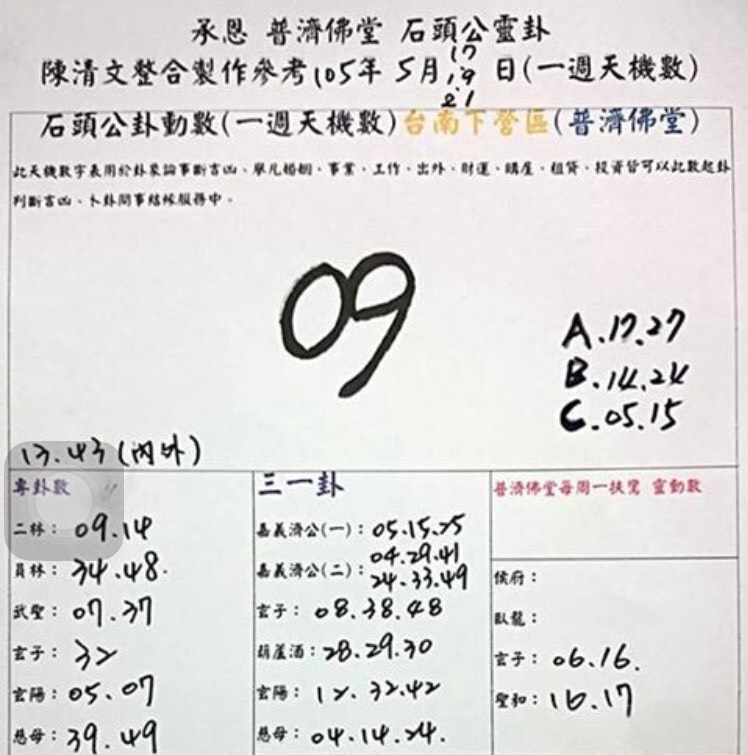 承恩 普濟佛堂 石頭公靈卦
陳清文整合製作參考105年5月17.19.21日(一週天機數)
石頭公卦動數(一週天機數)台南下營區(普濟佛堂)
此天機數字表用於卦象論事斷吉凶、舉凡婚姻、事業、工作、出外、財運、購屋、租貸、投資皆可以此數起卦
判斷吉凶、卜卦問事結緣服務中。
09
A.17.27
B.14.24
C.05.15
13.43(內外)
專卦數
二林：09.14
員林：34.48.
武聖：07.37
玄子：32
玄陽：05.07
慈母：39.49
三一卦
嘉義濟公(一)：05.15.25
嘉義濟公(二)：04.29.41
24.33.49
玄子：08.38.48
葫蘆酒：28.29.30
玄陽：12.32.42
慈母：04.14.24.
普濟佛堂每周一扶鸞 靈動數
侯府：
臥龍：
玄子：06.16.
聖和：16.17